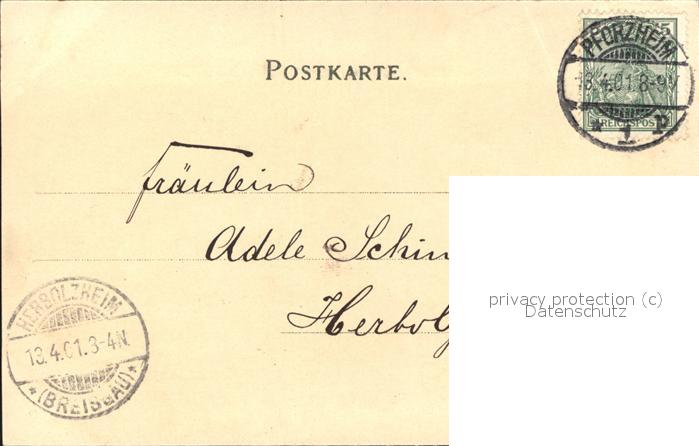 POSTKARTE.
5
PFORZHEIM
13.4.01.8-9V.
REICHSPOST
* 1 P
Fräulein
Adele Schin
Herbolz
privacy protection (c)
Datenschutz
HERBOLZHEIM
13.4.01.3-4N.
*(BREISGAU)*